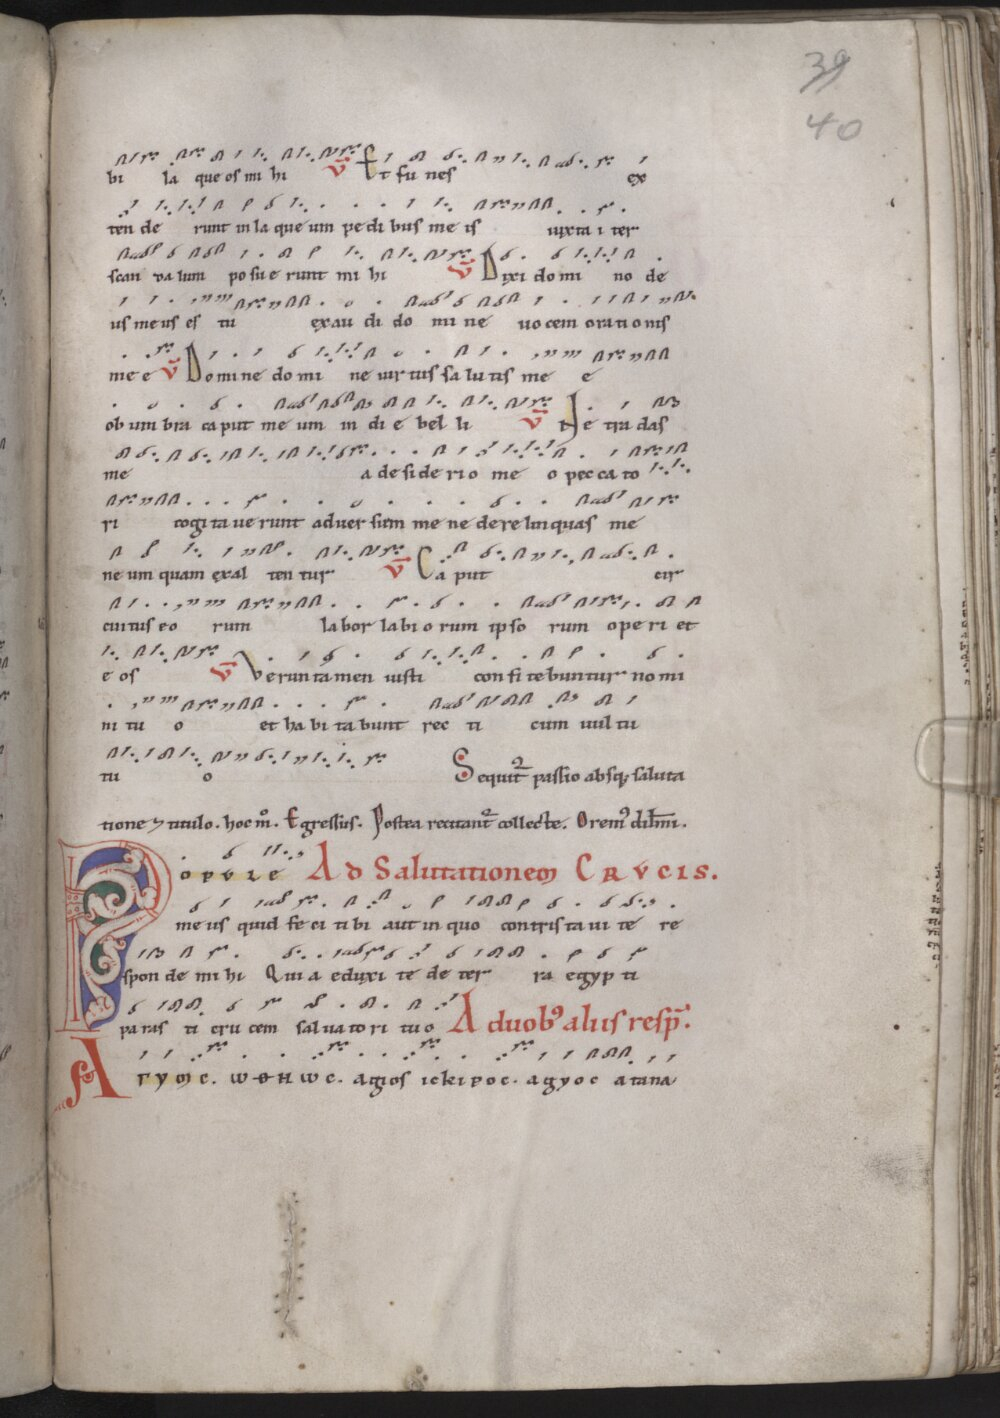 39
40
bi la que os mi hi V Et fu nes ex
ten de runt in la que um pe di bus me is iuxta i ter
scan da lum po su e runt mi hi V Dixi do mi no de
us me us es tu exau di do mi ne uo cem orati o nis
me e V Do mi ne do mi ne uir tus sa lu tis me e
ob um bra ca put me um in di e bel li V Ne tra das
me a de si de ri o me o pec ca to
ri cogi ta ue runt ad uer sum me ne de re lin quas me
ne um quam exal ten tur V Ca put cir
cui tus e o rum la bor la bi o rum ip so rum ope ri et
e os V Ve run ta men iusti con fi te bun tur no mi
ni tu o et ha bi ta bunt rec ti cum uul tu
tu o Sequit passio absq; saluta
tione 7 titulo. hoc m. Egressus. Postea recitant collecte. Orem' dilmi.
Popule Ad Salutationem CRVCIS.
me us quid fe ci ti bi aut in quo con tris ta ui te re
spon de mi hi Qui a eduxi te de ter ra egyp ti
pa ras ti cru cem sal ua to ri tu o A duob' aliis resp.
Aγyoc. w θ h w c. agios ickiroc. agyoc atana